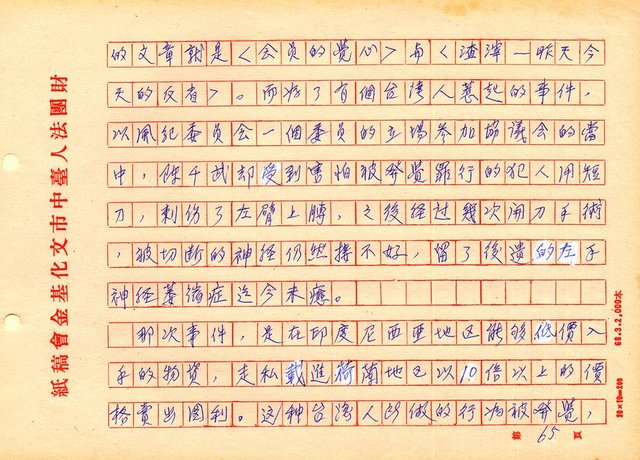 的文章就是〈会员的覺心〉与〈渣滓—昨天今
天的反省〉。而為了有個台湾人惹起的事件，
以風紀委员会一個委员的立場参加協議会的當
中，陈千武却受到害怕被發覺罪行的犯人用短
刀，刺伤了左臂上膊，之後经过幾次開刀手術
，被切断的神经仍然接不好，留了後遺的左手
神经萎缩症迄今未癒。
那次事件，是在印度尼西亜地区能够低價入
手的物貨，走私載進荷蘭地区以10倍以上的價
格賣出图利。这种台湾人所做的行為被發覺，
財團法人臺中市文化基金會稿紙
68.3.2,000本
20×10=200
第 65 頁